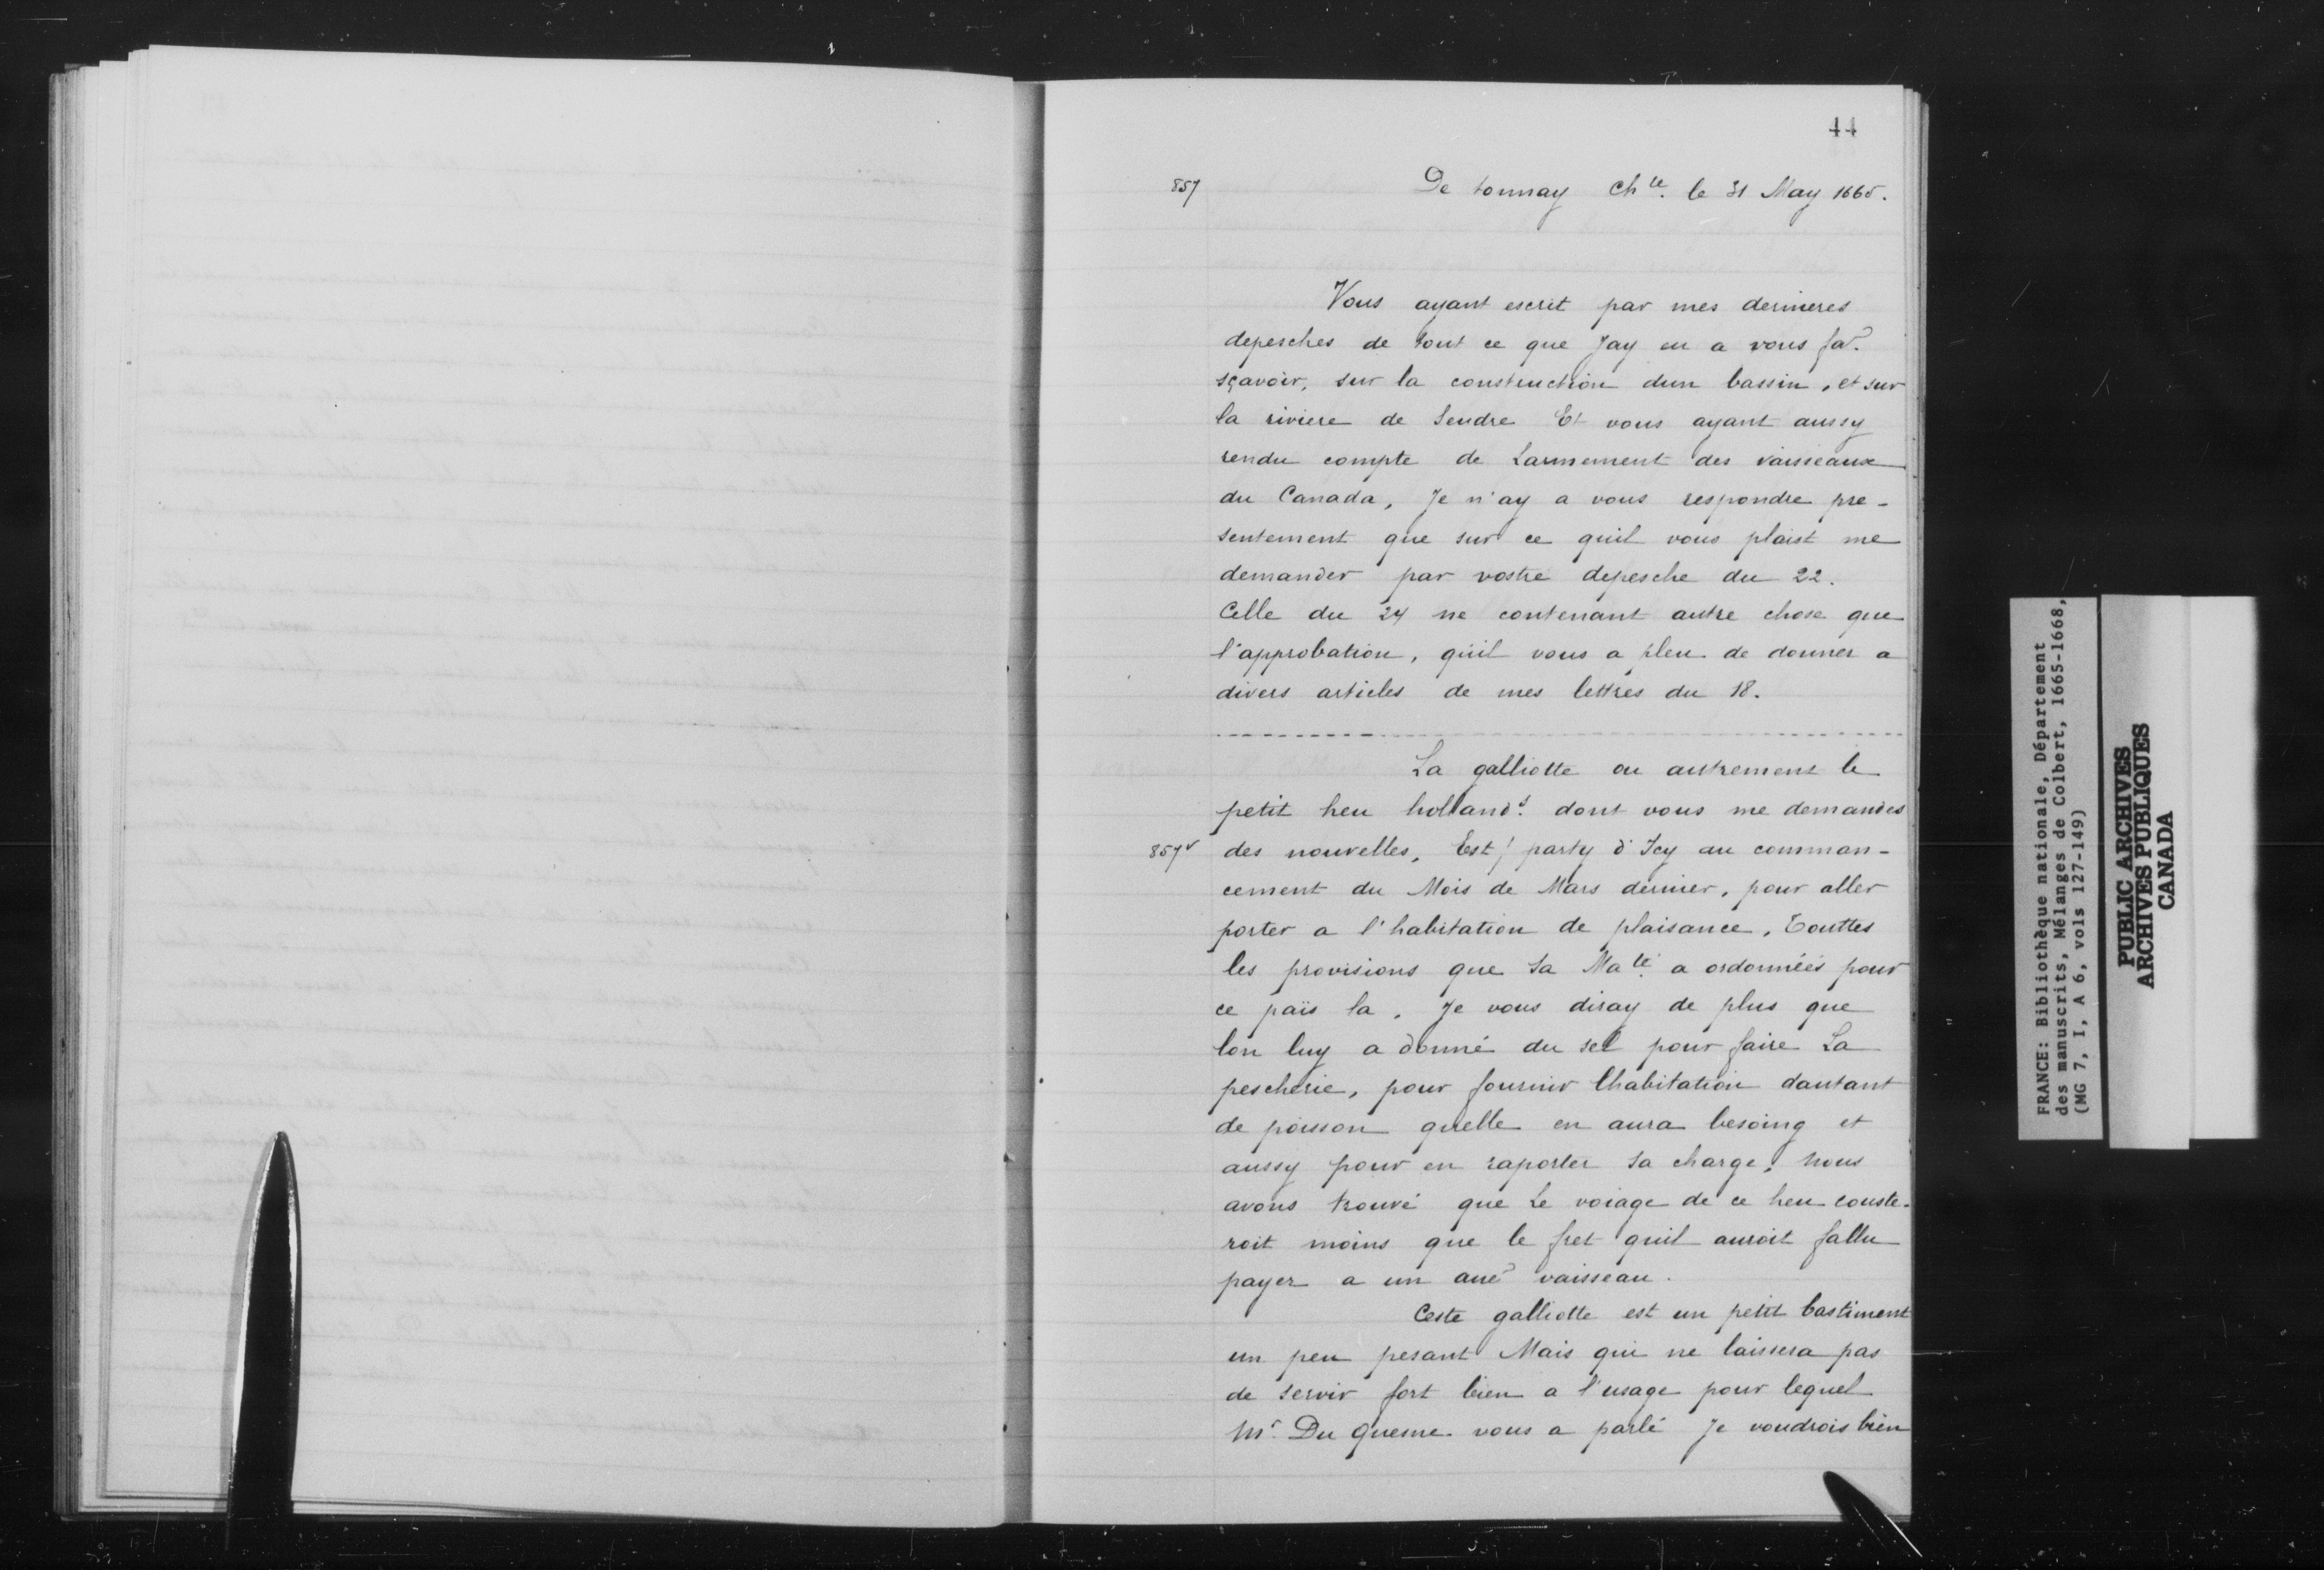 44
857
De tonnay Chte. le 31 May 1665.
Vous ayant escrit par mes dernieres
depesches de tout ce que Jay eu a vous fa.
sçavoir, sur la construction dun bassin, et sur
la riviere de Seudre Et vous ayant aussy
rendu compte de Larmement des vaisseaux
du Canada, Je n'ay a vous respondre pre-
sentement que sur ce quil vous plaist me
demander par vostre depesche du 22.
Celle du 24 ne contenant autre chose que
l'approbation, quil vous a pleu de donner a
divers articles de mes lettres du 18.
La galliotte ou autrement le
petit heu holland.s dont vous me demandes
857v des nouvelles, Est / party d'Icy au comman-
cement du Mois de Mars dernier, pour aller
porter a l'habitation de plaisance, Touttes
les provisions que Sa Ma.té a ordonnéés pour
ce païs la. Je vous diray de plus que
lon luy a donné du sel pour faire La
pescherie, pour fournir lhabitation dautant
de poisson quelle en aura besoing et
aussy pour en raporter sa charge, nous
avons trouvé que Le voiage de ce heu couste-
roit moins que le fret quil auroit fallu
payer a un aue vaisseau.
Ceste galliotte est un petit bastiment
un peu pesant Mais qui ne laissera pas
de servir fort bien a l'usage pour lequel
Mr. Du Quesne vous a parlé Je voudrois bien
FRANCE: Bibliothèque nationale, Département
des manuscrits, Mélanges de Colbert, 1665-1668,
(MG 7, I, A 6, vols 127-149)
PUBLIC ARCHIVES
ARCHIVES PUBLIQUES
CANADA